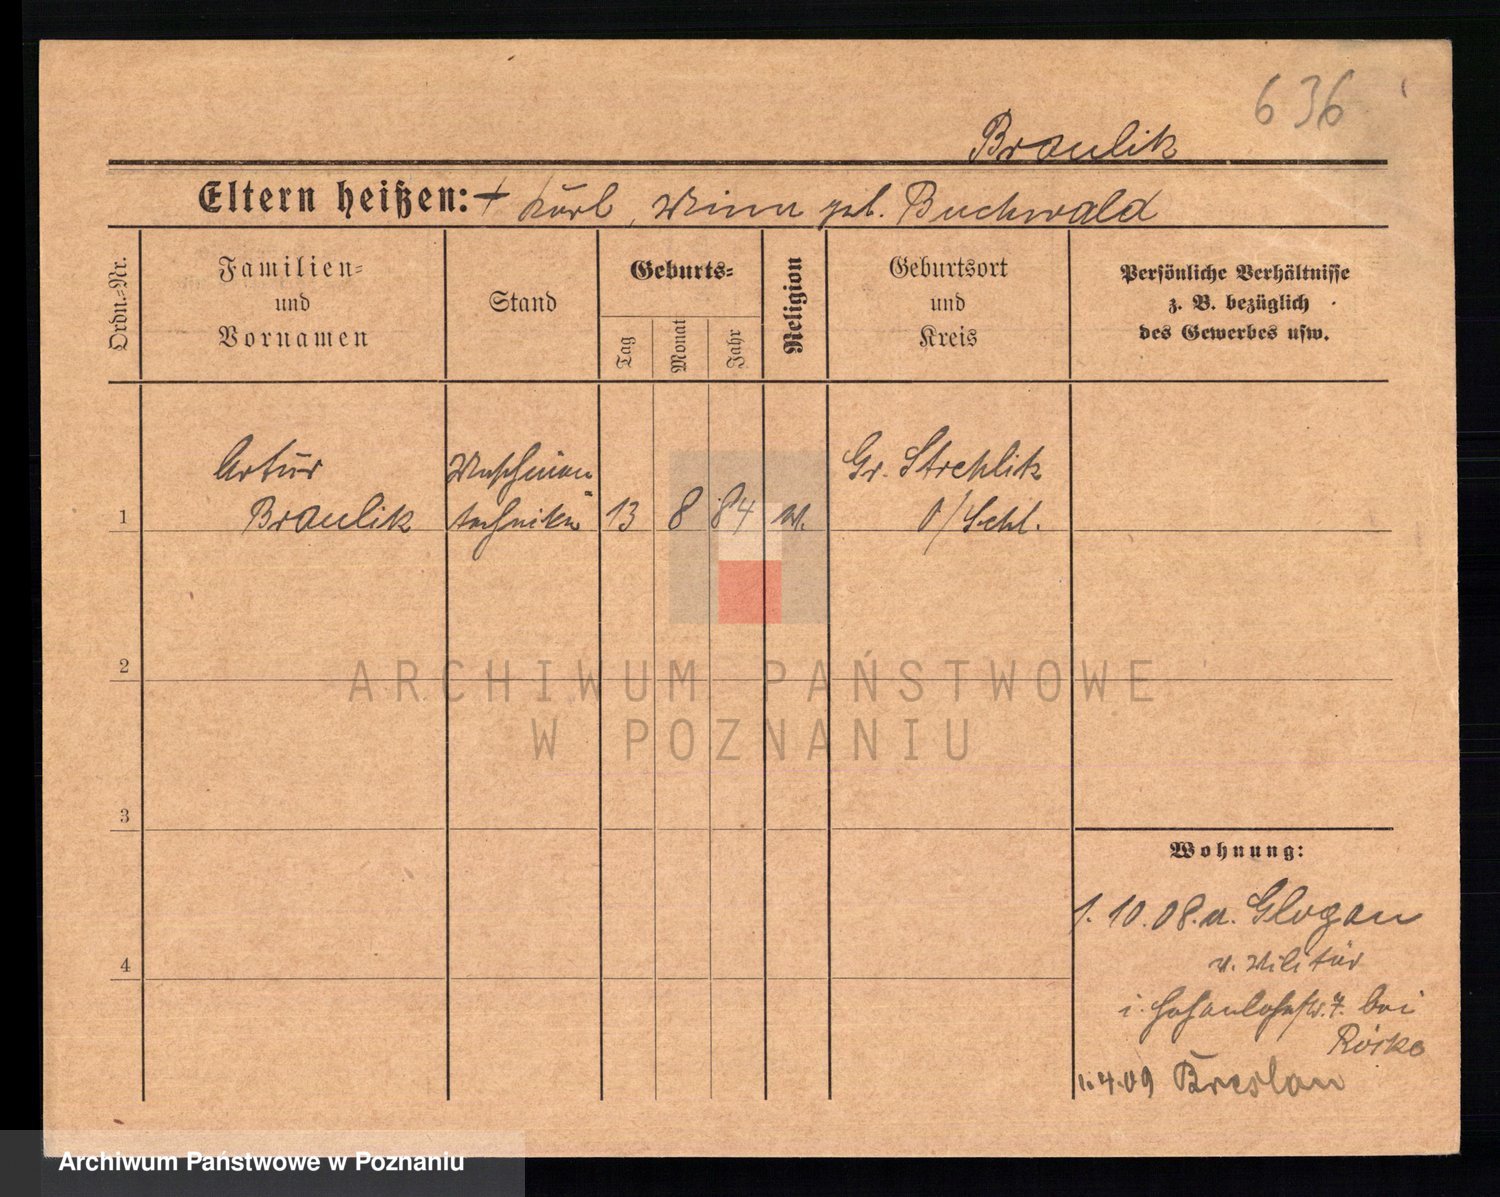 636
Braulik
Eltern heißen: + Karl, Minna geb. Buchwald
Ordn.-Nr.
Familien-
und
Vornamen
Stand
Geburts-
Tag
Monat
Jahr
Religion
Geburtsort
und
Kreis
Persönliche Verhältnisse
z. B. bezüglich
des Gewerbes usw.
Artur
Braulik
Maschinen
techniker
1
13
8
84
Gr. Strehlik
O/Schl.
2
3
4
Wohnung:
1. 10. 08. a. Glogau
v. Militär
i. Hohenlohestr. 7. bei
1. 4. 09 Breslau
ARCHIWUM PAŃSTWOWE
W POZNANIU
Archiwum Państwowe w Poznaniu